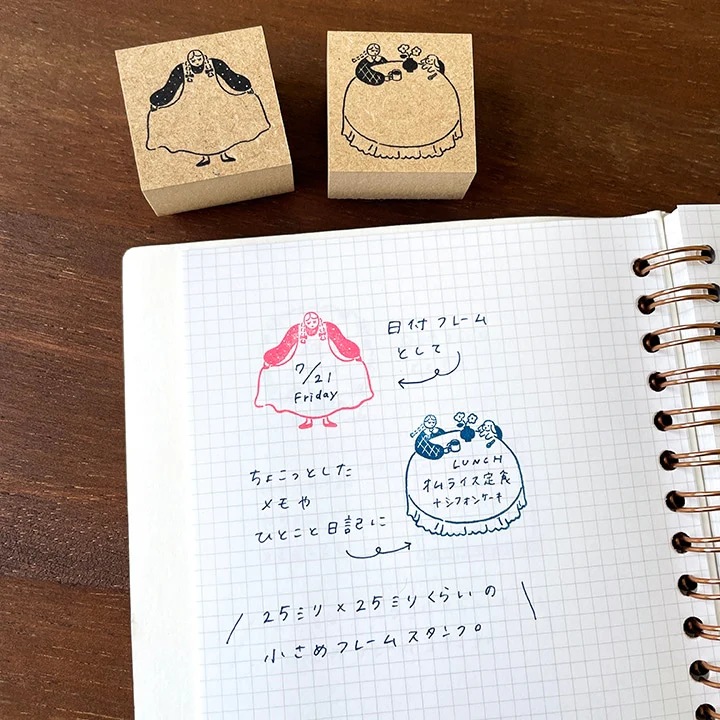 日付フレーム
として
7/21
Friday
LUNCH
オムライス定食
+シフォンケーキ
ちょこっとした
メモや
ひとこと日記に
25ミリ×25ミリくらいの
小さめフレームスタンプ。